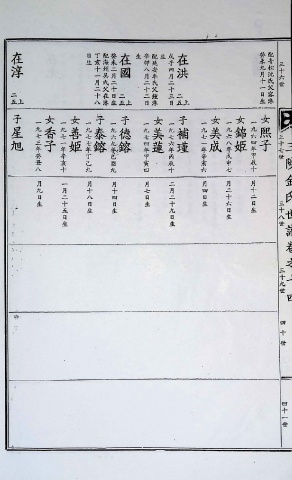 三十六世
三十七世
三十八世
三十九世
四十世
四十一世
陵金氏世譜卷之十四
配青松沈氏父容澤
癸未九月十一日生
女熙子
一九六四年甲辰十
月十二日生
女錦姬
一九六八年戊申七
月二十六日生
女美成
一九七一年辛亥六
月十四日生
在洪
二五上
戊子四月二十三日
生
辛卯八月二十日生
子補瑾
一九七六年丙辰十
二月二十九日生
女美蓮
一九七四年甲寅四
月七日生
在國
二五上
癸未二月二十日生
配海州吳氏父在
丁亥十一月二十八
日生
子德鎔
一九六九年己酉九
月十四日生
子泰鎔
一九七七年丁巳九
月十八日生
女善姬
一九七一年辛亥十
一月二十五日生
女香子
一九七三年癸丑八
月九日生
在淳
二五上
子星旭